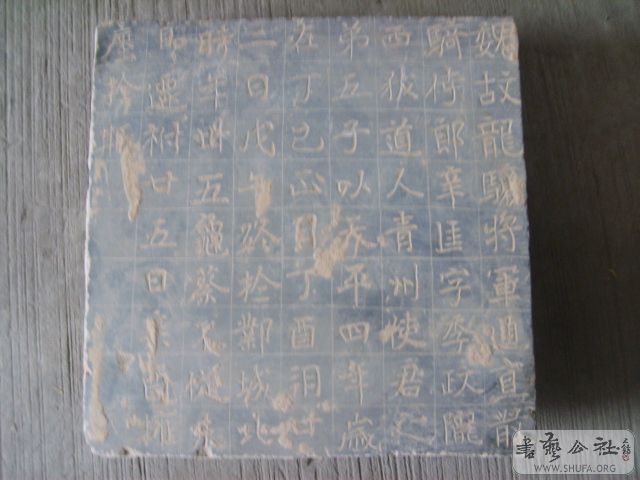 魏故龍驤將軍通直散
騎侍郎辛匡字季政隴
西狄道人青州使君之
弟五子以天平四年歲
在丁巳正月丁酉朔廿
二日戊午終於鄴城北
時年卌五龜蔡不從未
遷祔廿五日辛酉權
於
書藝公社
WWW.SHUFA.ORG